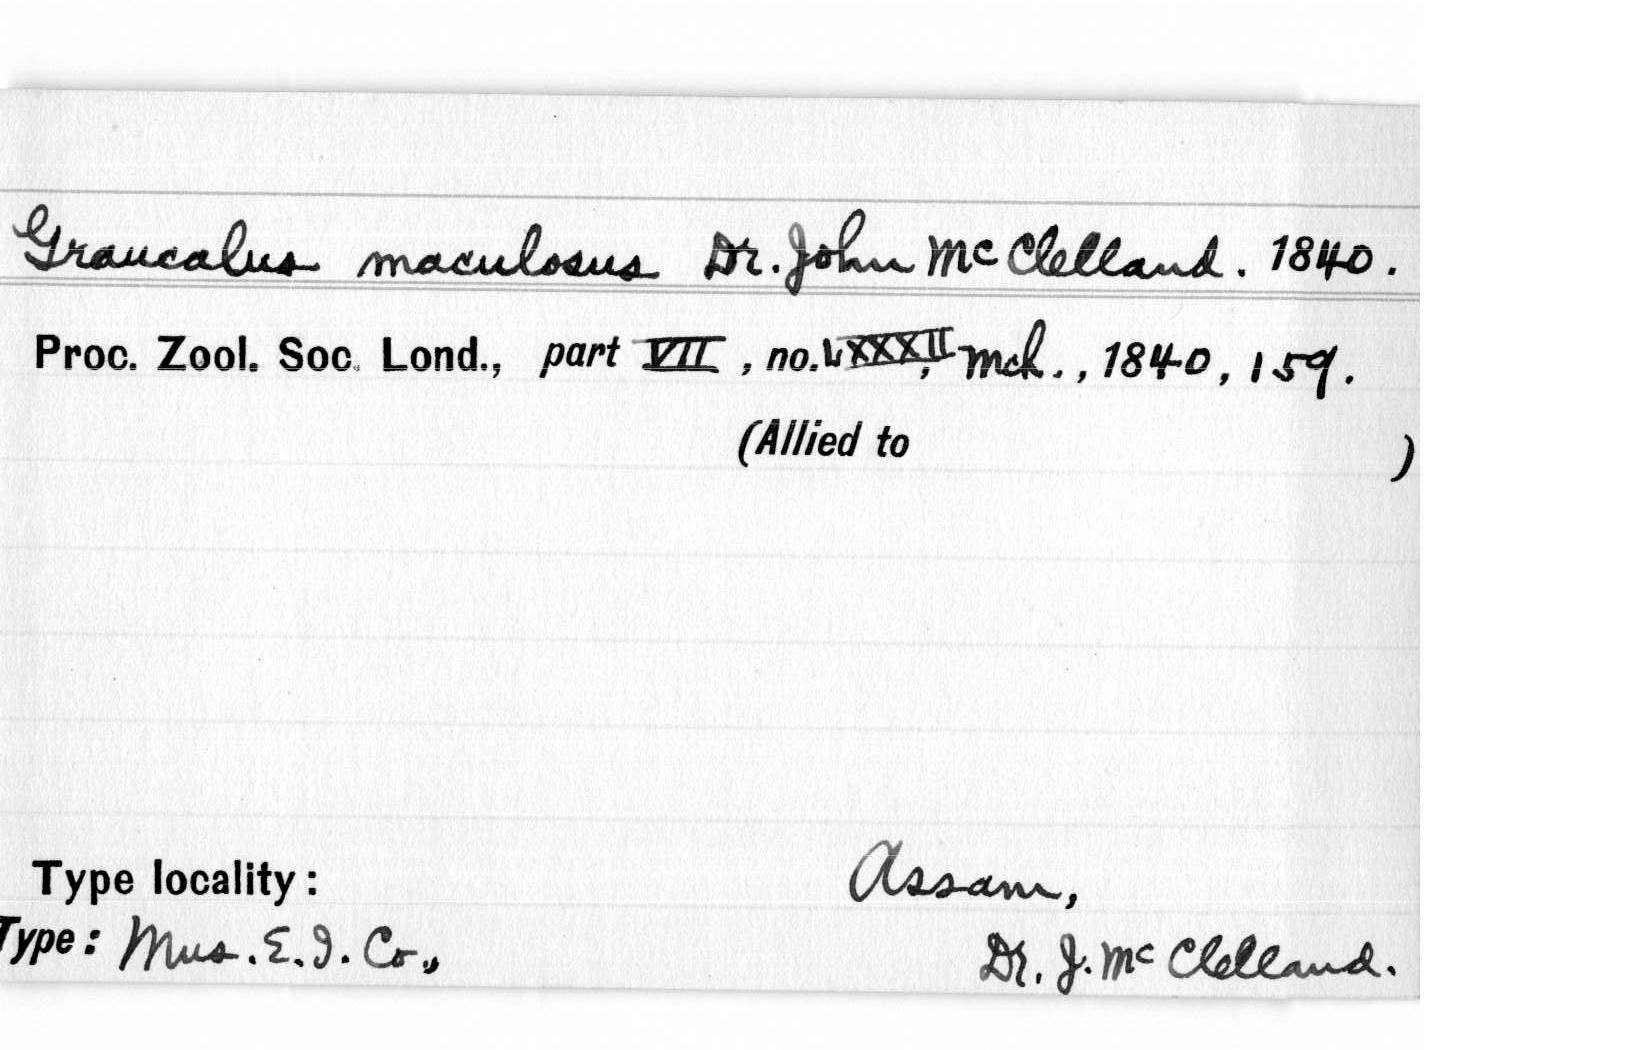 Graucalus maculosus Dr. John McClelland. 1840.
Proc. Zool. Soc. Lond., part VII, no. LXXXII, Mch., 1840, 159.
(Allied to )
Type locality: Assam,
Type: Mus. E. I. Co., Dr. J. McClelland.